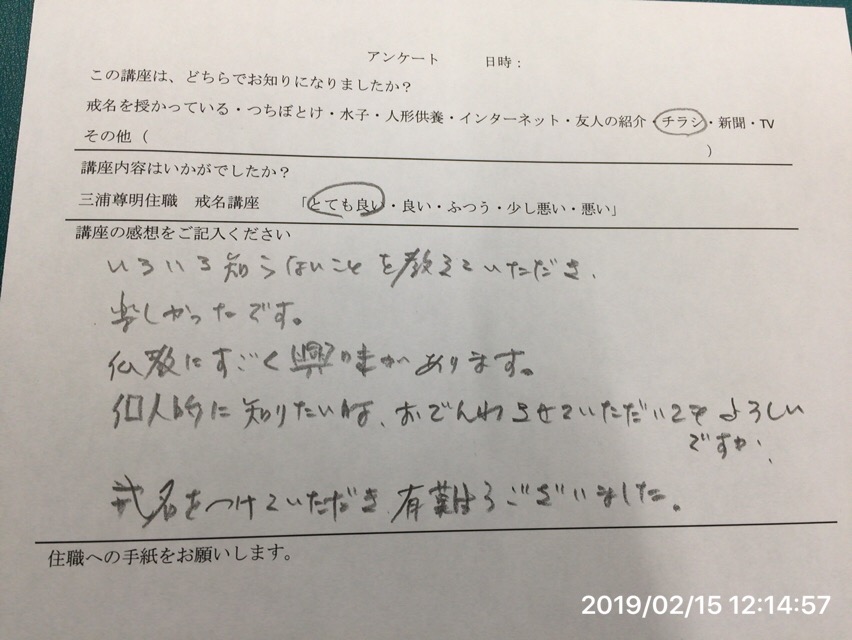 アンケート 日時：
この講座は、どちらでお知りになりましたか？
戒名を授かっている・つちぼとけ・水子・人形供養・インターネット・友人の紹介・チラシ・新聞・TV
その他（ ）
講座内容はいかがでしたか？
三浦尊明住職 戒名講座 「とても良い・良い・ふつう・少し悪い・悪い」
講座の感想をご記入ください
いろいろ知らないことを教えていただき、
楽しかったです。
仏教にすごく興味があります。
個人的に知りたい時、おでんわさせていただいてもよろしい
ですか、
戒名をつけていただき有難うございました。
住職への手紙をお願いします。
2019/02/15 12:14:57